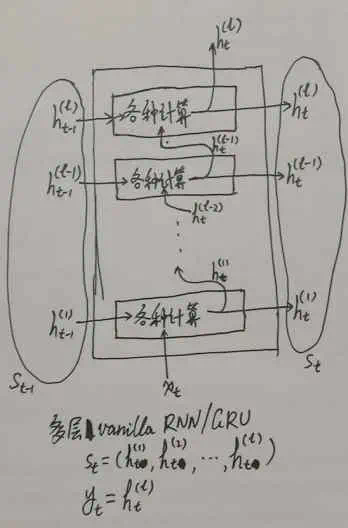 h_t^(l)
h_{t-1}^(l) 各种计算 h_t^(l)
h_t^(l-1)
h_{t-1}^(l-1) 各种计算 h_t^(l-1)
h_t^(l-2)
h_t^(1)
h_{t-1}^(1) 各种计算 h_t^(1)
S_{t-1} S_t
x_t
多层vanilla RNN/GRU
S_t=(h_t^(1), h_t^(2), ..., h_t^(l))
y_t=h_t^(l)